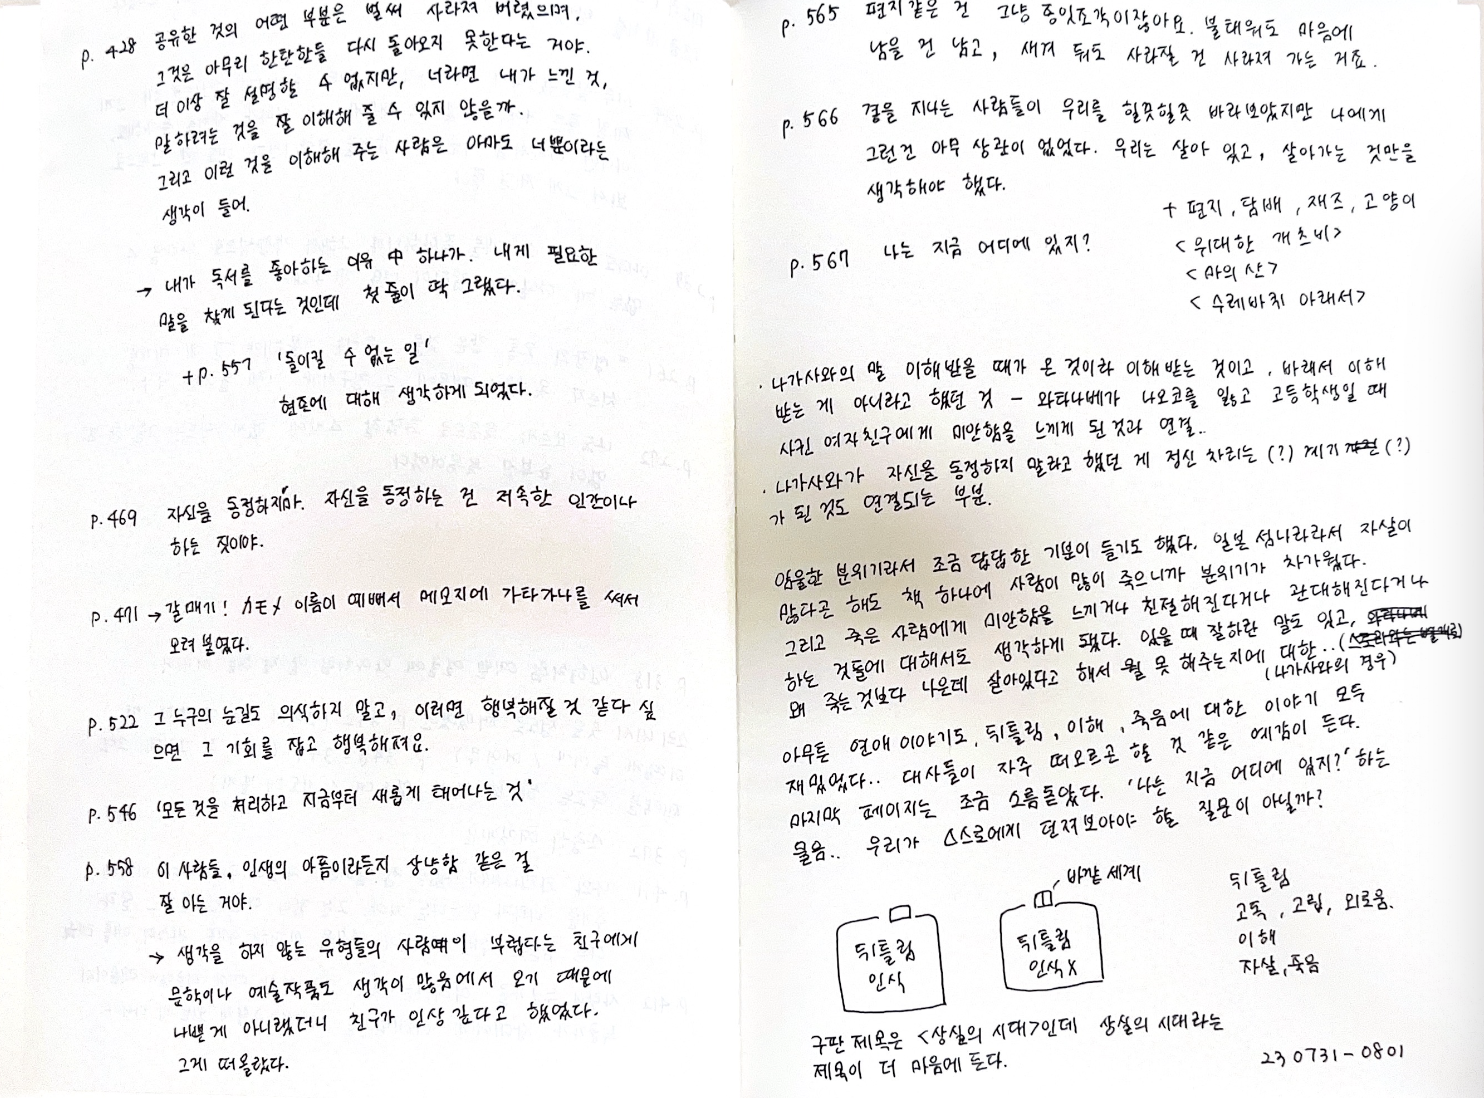 p. 428 공유한 것의 어떤 부분은 벌써 사라져 버렸으며,
그것은 아무리 한탄한들 다시 돌아오지 못한다는 거야.
더 이상 잘 설명할 수 없지만, 너라면 내가 느낀 것,
말하려는 것을 잘 이해해 줄 수 있지 않을까.
그리고 이런 것을 이해해 주는 사람은 아마도 너뿐이라는
생각이 들어.
→ 내가 독서를 좋아하는 이유 中 하나가. 내게 필요한
말을 찾게 된다는 것인데 첫 줄이 딱 그랬다.
+p. 557 '돌이킬 수 없는 일'
현존에 대해 생각하게 되었다.
p. 469 자신을 동정하지마. 자신을 동정하는 건 저속한 인간이나
하는 짓이야.
p. 471 → 갈매기! カモメ 이름이 예뻐서 메모지에 가타가나를 써서
오려 붙였다.
p. 522 그 누구의 눈길도 의식하지 말고, 이러면 행복해질 것 같다 싶
으면 그 기회를 잡고 행복해져요.
p. 546 '모든 것을 처리하고 지금부터 새롭게 태어나는 것'
p. 558 이 사람들, 인생의 아픔이라든지 상냥함 같은 걸
잘 아는 거야.
→ 생각을 하지 않는 유형들의 사람이 부럽다는 친구에게
문학이나 예술작품도 생각이 많음에서 오기 때문에
나쁜 게 아니랬더니 친구가 인상 깊다고 했었다.
그게 떠올랐다.
p. 565 편지 같은 건 그냥 종잇조각이잖아요. 불태워도 마음에
남을 건 남고, 새겨 둬도 사라질 건 사라져 가는 거죠.
p. 566 곁을 지나는 사람들이 우리를 힐끗힐끗 바라보았지만 나에게
그런건 아무 상관이 없었다. 우리는 살아 있고, 살아가는 것만을
생각해야 했다.
+ 편지, 담배, 재즈, 고양이
p. 567 나는 지금 어디에 있지?
<위대한 개츠비>
<마의 산>
<수레바퀴 아래서>
· 나가사와의 말 이해받을 때가 온 것이라 이해 받는 것이고, 바래서 이해
받는 게 아니라고 했던 것 - 와타나베가 나오코를 잃고 고등학생일 때
사귄 여자친구에게 미안함을 느끼게 된 것과 연결..
· 나가사와가 자신을 동정하지 말라고 했던 게 정신 차리는 (?) 계기 (?)
가 된 것도 연결되는 부분.
암울한 분위기라서 조금 답답한 기분이 들기도 했다. 일본 섬나라라서 자살이
많다곤 해도 책 하나에 사람이 많이 죽으니까 분위기가 차가웠다.
그리고 죽은 사람에게 미안함을 느끼거나 친절해진다거나 관대해진다거나
하는 것들에 대해서도 생각하게 됐다. 있을 때 잘하란 말도 있고,
왜 죽는 것보다 나은데 살아있다고 해서 뭘 못 해주는지에 대한..
(나가사와의 경우)
아무튼 연애 이야기도, 뒤틀림, 이해, 죽음에 대한 이야기 모두
재밌었다.. 대사들이 자주 떠오르곤 할 것 같은 예감이 든다.
마지막 페이지는 조금 소름 돋았다. '나는 지금 어디에 있지?' 하는
물음.. 우리가 스스로에게 던져보아야 할 질문이 아닐까?
바깥 세계
뒤틀림
인식
뒤틀림
인식 X
뒤틀림
고독, 고립, 외로움.
이해
자살, 죽음
구판 제목은 <상실의 시대>인데 상실의 시대라는
제목이 더 마음에 든다.
23 0731-0801